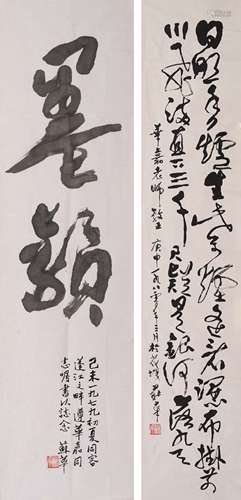 日照香爐生紫煙遙看瀑布掛前
川飛流直下三千尺疑是銀河落九天
華嘉老師教正 庚申一九八零年三月於羊城
墨韻
己未一九七九初夏同客
江之畔遵華嘉同
志嘱書以誌念 蘇華